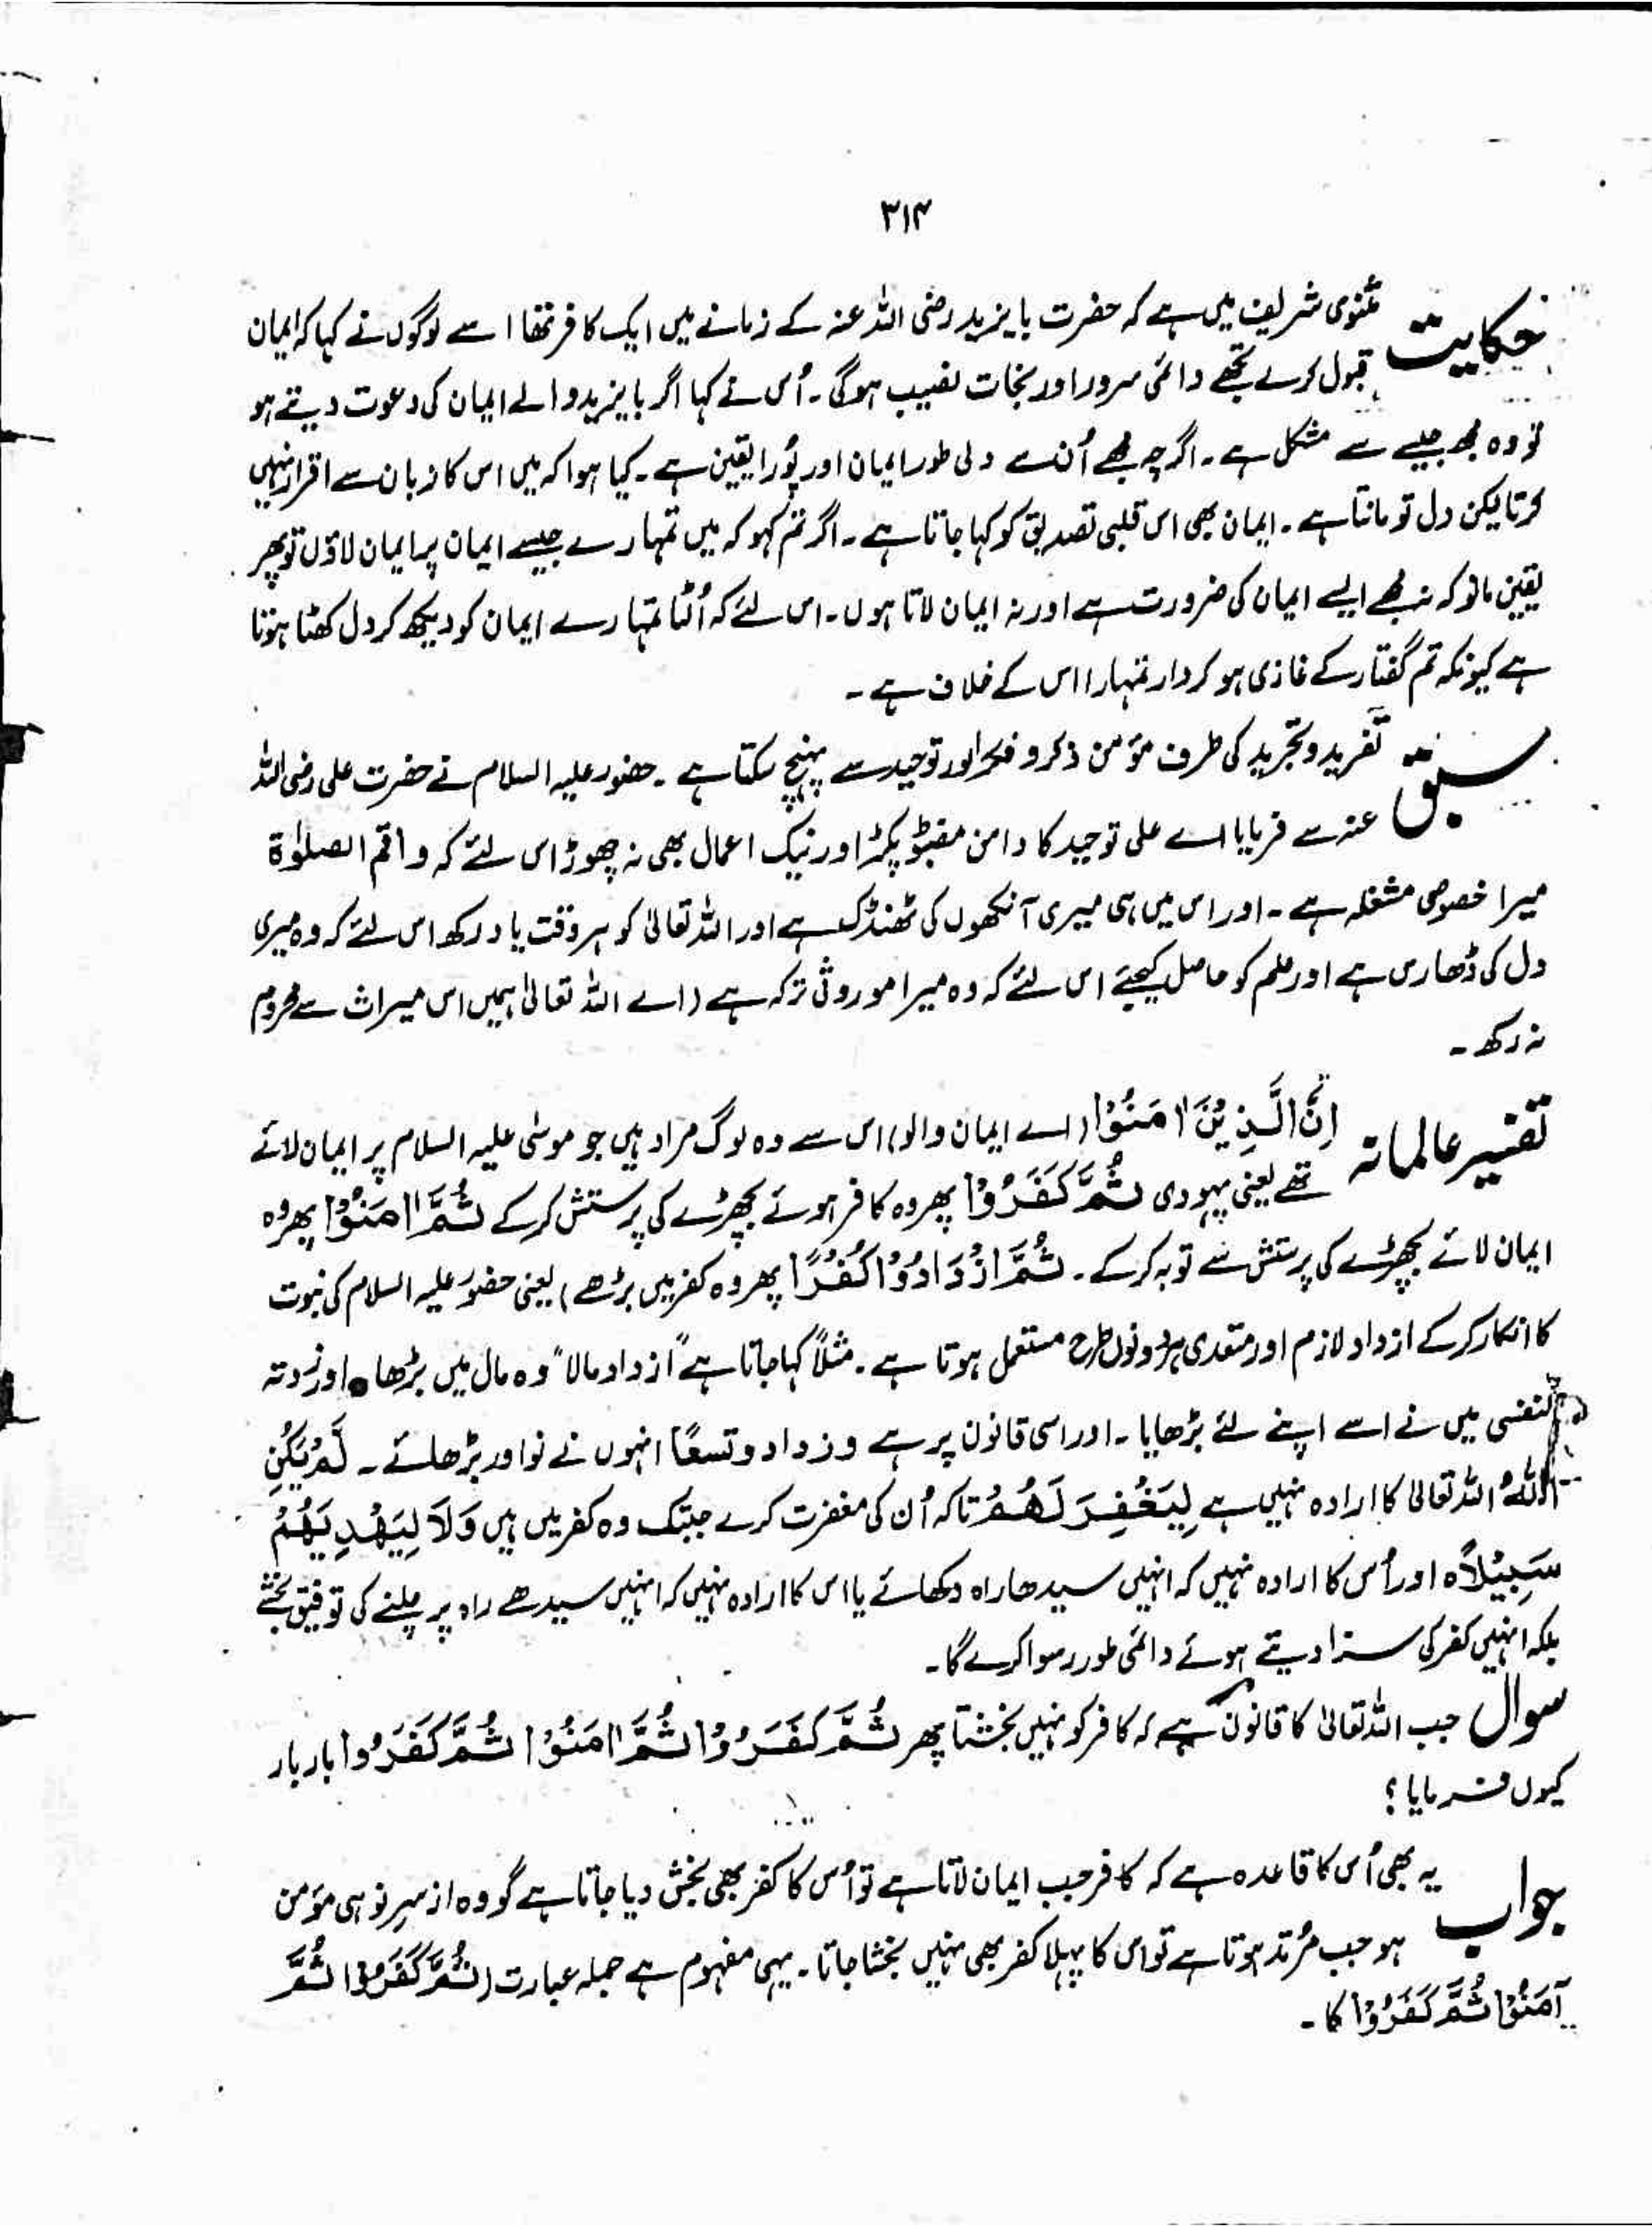 ۳۱۴
حکایت مثنوی شریف میں ہے کہ حضرت بایزید رضی اللہ عنہ کے زمانے میں ایک کافر تھا اسے لوگوں نے کہا کہ ایمان
قبول کرلے تجھے دائمی سرور اور نجات نصیب ہوگی۔ اُس نے کہا اگر بایزید والے ایمان کی دعوت دیتے ہو
تو وہ مجھ جیسے سے مشکل ہے۔ اگرچہ مجھے اُن سے دلی طور ایمان اور پُورا یقین ہے۔ کیا ہوا کہ میں اس کا زبان سے اقرار نہیں
کرتا لیکن دل تو مانتا ہے۔ ایمان بھی اس قلبی تصدیق کو کہا جاتا ہے۔ اگر تم کہو کہ میں تمہارے جیسے ایمان پر ایمان لاؤں تو پھر
یقین مانو کہ نہ مجھے ایسے ایمان کی ضرورت ہے اور نہ ایمان لاتا ہوں۔ اس لئے کہ اُلٹا تمہارے ایمان کو دیکھ کر دل کھٹا ہوتا
ہے کیونکہ تم گفتار کے غازی ہو کردار تمہارا اس کے خلاف ہے۔
سبق تفرید و تجرید کی طرف مؤمن ذکر و فکر اور توحید سے پہنچ سکتا ہے۔ حضور علیہ السلام نے حضرت علی رضی اللہ
عنہ سے فرمایا اے علی توحید کا دامن مضبوط پکڑ اور نیک اعمال بھی نہ چھوڑ اس لئے کہ واقم الصلوٰۃ
میرا خصوصی مشغلہ ہے۔ اور اس میں ہی میری آنکھوں کی ٹھنڈک ہے اور اللہ تعالیٰ کو ہر وقت یاد رکھ اس لئے کہ وہ میری
دل کی ڈھارس ہے اور علم کو حاصل کیجئے اس لئے کہ وہ میرا موروثی ترکہ ہے (اے اللہ تعالیٰ ہمیں اس میراث سے محروم
نہ رکھ۔
تفسیر عالمانہ اِنَّ الَّذِیْنَ اٰمَنُوْا (اے ایمان والو) اس سے وہ لوگ مراد ہیں جو موسیٰ علیہ السلام پر ایمان لائے
تھے یعنی یہودی ثُمَّ کَفَرُوْا پھر وہ کافر ہوئے بچھڑے کی پرستش کرکے ثُمَّ اٰمَنُوْا پھر وہ
ایمان لائے بچھڑے کی پرستش سے توبہ کرکے۔ ثُمَّ ازْدَادُوْا کُفْرًا پھر وہ کفر میں بڑھے) یعنی حضور علیہ السلام کی نبوت
کا انکار کرکے ازداد لازم اور متعدی ہر دونوں طرح مستعمل ہوتا ہے۔ مثلاً کہا جاتا ہے "ازداد مالا" وہ مال میں بڑھا۔ اور زدتہ
لنفسی میں نے اسے اپنے لئے بڑھایا۔ اور اسی قانون پر ہے وزدادو تسعًا انہوں نے نو اور بڑھائے۔ لَمْ یَکُنِ
اللّٰهُ اللہ تعالیٰ کا ارادہ نہیں ہے لِیَغْفِرَ لَهُمْ تاکہ اُن کی مغفرت کرے جبتک وہ کفر میں ہیں وَلَا لِیَهْدِیَهُمْ
سَبِیْلًاہ اور اُس کا ارادہ نہیں کہ انہیں سیدھا راہ دکھائے یا اس کا ارادہ نہیں کہ انہیں سیدھے راہ پر چلنے کی توفیق بخشے
بلکہ انہیں کفر کی سزا دیتے ہوئے دائمی طور رسوا کرے گا۔
سوال جب اللہ تعالیٰ کا قانون ہے کہ کافر کو نہیں بخشتا پھر ثُمَّ کَفَرُوْا ثُمَّ اٰمَنُوْا ثُمَّ کَفَرُوا بار بار
کیوں فرمایا؟
جواب یہ بھی اُس کا قاعدہ ہے کہ کافر جب ایمان لاتا ہے تو اُس کا کفر بھی بخش دیا جاتا ہے گو وہ از سرِ نو ہی مؤمن
ہو جب مُرتد ہوتا ہے تو اس کا پہلا کفر بھی نہیں بخشا جاتا۔ یہی مفہوم ہے جملہ عبارت (ثُمَّ کَفَرُوْا ثُمَّ
آمَنُوْا ثُمَّ کَفَرُوْا کا۔